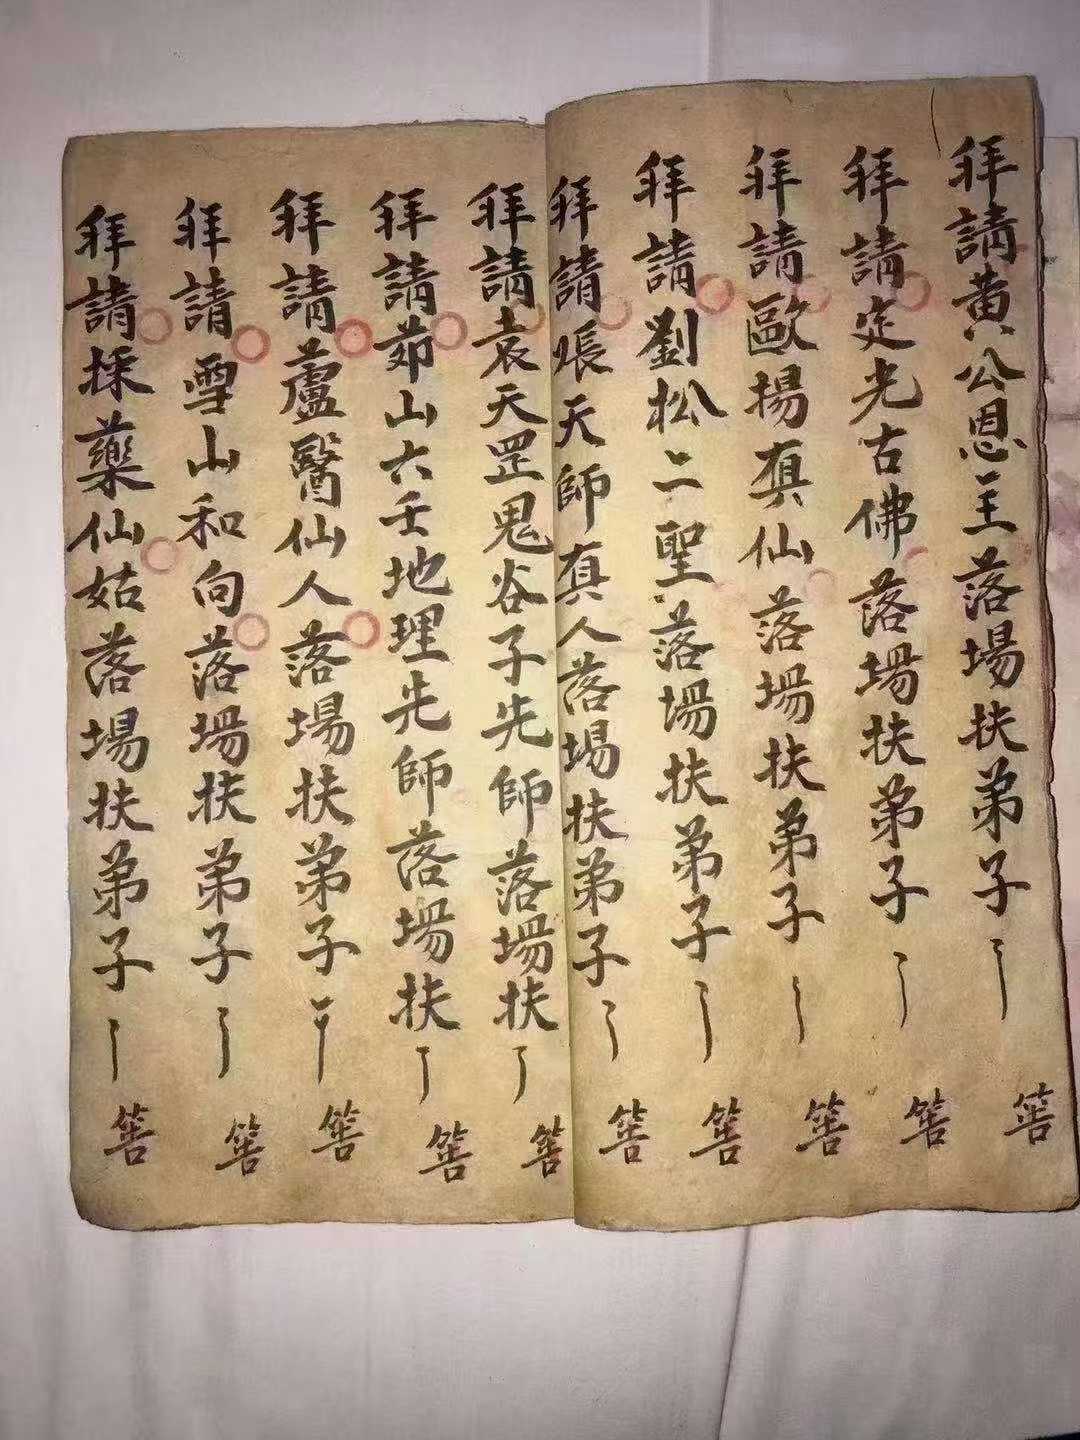 拜請黃公恩主落場扶弟子
筶
拜請定光古佛落場扶弟子
筶
拜請歐揚真仙落場扶弟子
筶
拜請劉松二聖落場扶弟子
筶
拜請張天師真人落場扶弟子
筶
拜請袁天罡鬼谷子先師落場扶
筶
拜請茆山六壬地理先師落場扶
筶
拜請蘆醫仙人落場扶弟子
筶
拜請雪山和向落場扶弟子
筶
拜請採藥仙姑落場扶弟子
筶